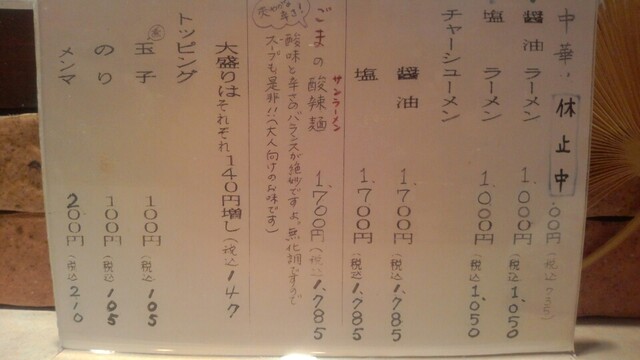 中華、休止中 00円(税込735)
醤油ラーメン 1.000円(税込)1.050
塩ラーメン 1.000円(税込)1.050
チャーシューメン
醤油 1.700円(税込)1.785
塩 1.700円(税込)1.785
サンラーメン
ごまの酸辣麺 1.700円(税込)1.785
酸味と辛さのバランスが絶妙ですよ。無化調ですので
スープも是非!!(大人向けのお味です)
大盛りはそれぞれ140円増し(税込)147
トッピング
玉子 100円(税込)105
のり 100円(税込)105
メンマ 200円(税込)210